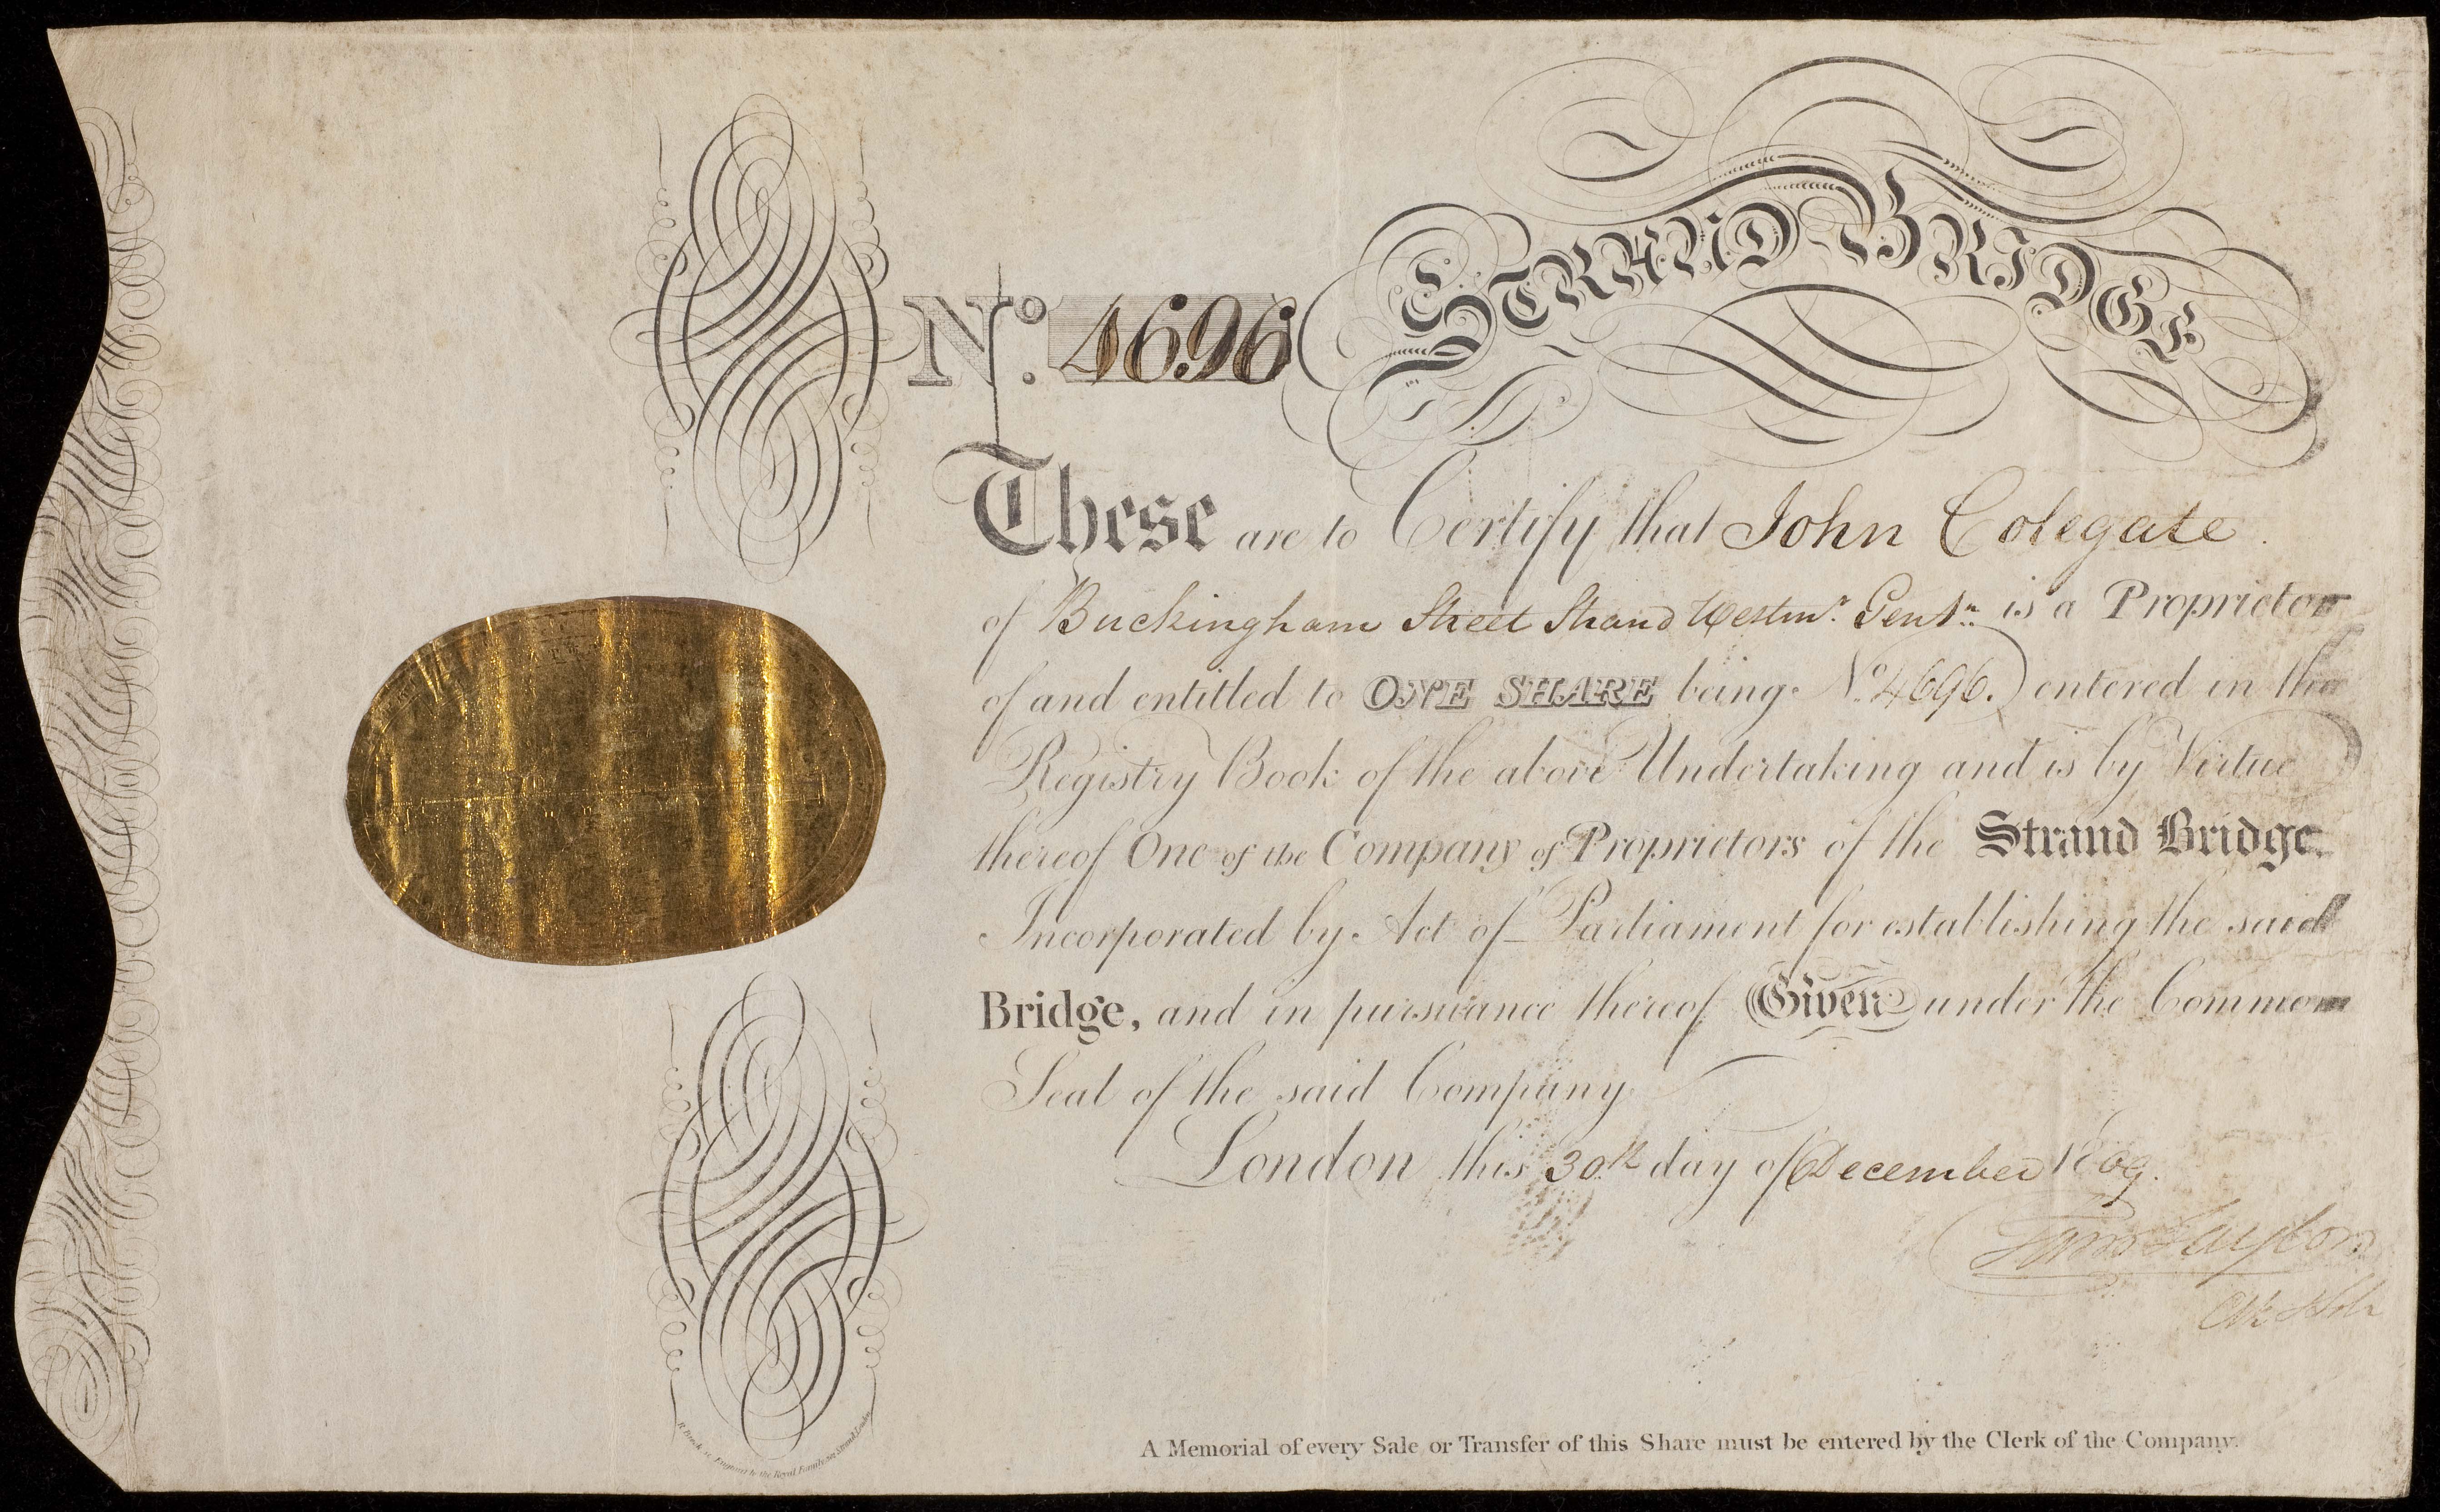 STRAND BRIDGE
No. 4696
These are to Certify that John Colegate
of Buckingham Street Strand Westmr. Gentn. is a Proprietor
of and entitled to ONE SHARE being No. 4696. entered in the
Registry Book of the above Undertaking and is by Virtue
thereof One of the Company of Proprietors of the Strand Bridge.
Incorporated by Act of Parliament for establishing the said
Bridge, and in pursuance thereof Given under the Common
Seal of the said Company
London this 30th day of December 1809.
Taylor
A Memorial of every Sale or Transfer of this Share must be entered by the Clerk of the Company.
Engraver to the Royal Family Strand London